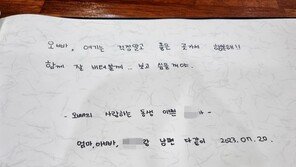 오빠야, 여기는 걱정말고 좋은 곳가서 행복해!!
함께 잘 버텨볼게.. 보고 싶을꺼야..
- 오빠의 사랑하는 동생 이쁜 가 -
엄마, 아빠, 랑 남편 다같이 2023. 07. 20.